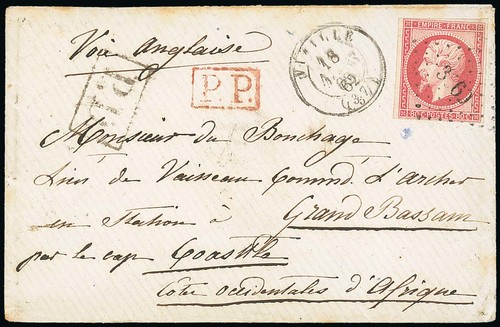 Voie Anglaise
P.D.
P.P.
VIZILLE
18
62
(37)
EMPIRE FRANC
80 C POSTES 80 C
Monsieur du Bouchage
Lieu de Vaisseau Command. L'archer
en Station à Grand Bassam
par le cap Coast
Côtes occidentales d'Afrique